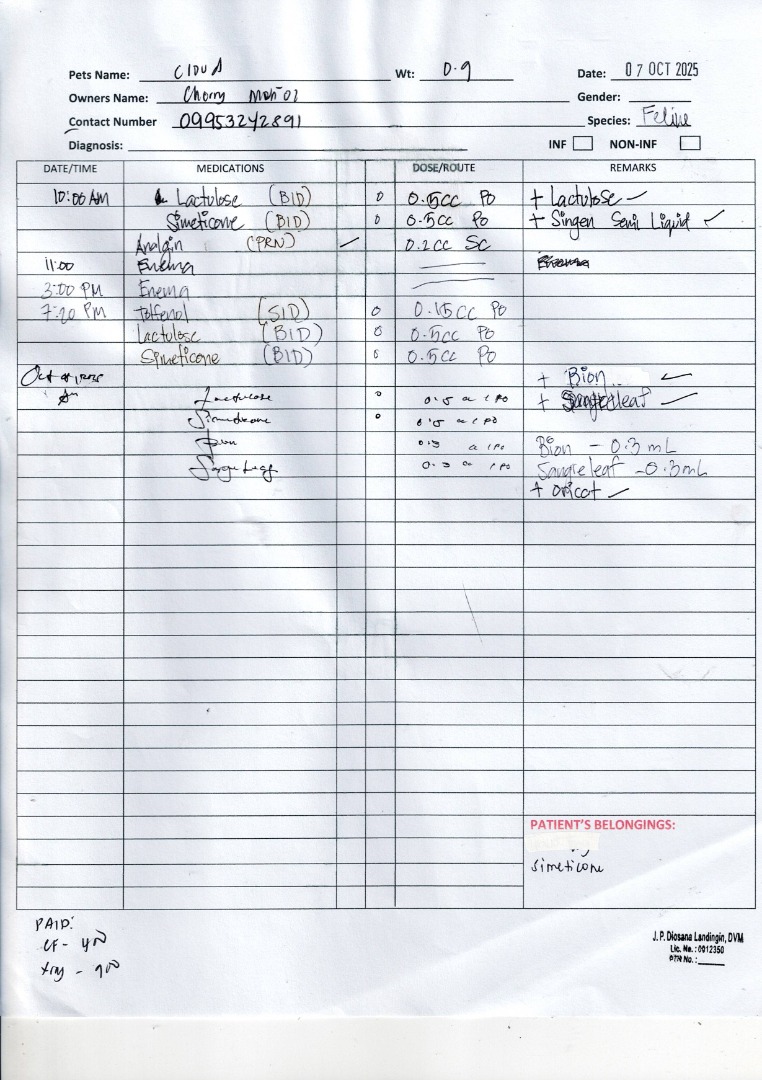 Pets Name: Cloud Wt: 0.9 Date: 07 OCT 2025
Owners Name: Cherry Gender:
Contact Number 09953242891 Species: Feline
Diagnosis: INF NON-INF
DATE/TIME MEDICATIONS DOSE/ROUTE REMARKS
10:00 AM Lactulose (BID) 0 0.5cc PO + Lactulose
Simeticone (BID) 0 0.5cc PO + Singen Semi Liquid
Analgin (PRN) 0.2cc SC
11:00 Enema
3:00 PM Enema
7:20 PM Tolfenol (SID) 0 0.15cc PO
Lactulose (BID) 0 0.5cc PO
Simeticone (BID) 0 0.5cc PO
Oct + Bion
Lactulose 0 0.5 PO + Sangreleaf
0 0.5 PO
0.3 PO Bion - 0.3 mL
0.3 PO Sangreleaf - 0.3mL
+ oricot
PATIENT'S BELONGINGS:
Simeticone
PAID:
CF - 400
J. P. Diosana Landingin, DVM
Lic. No.: 0912350
PTR No.: